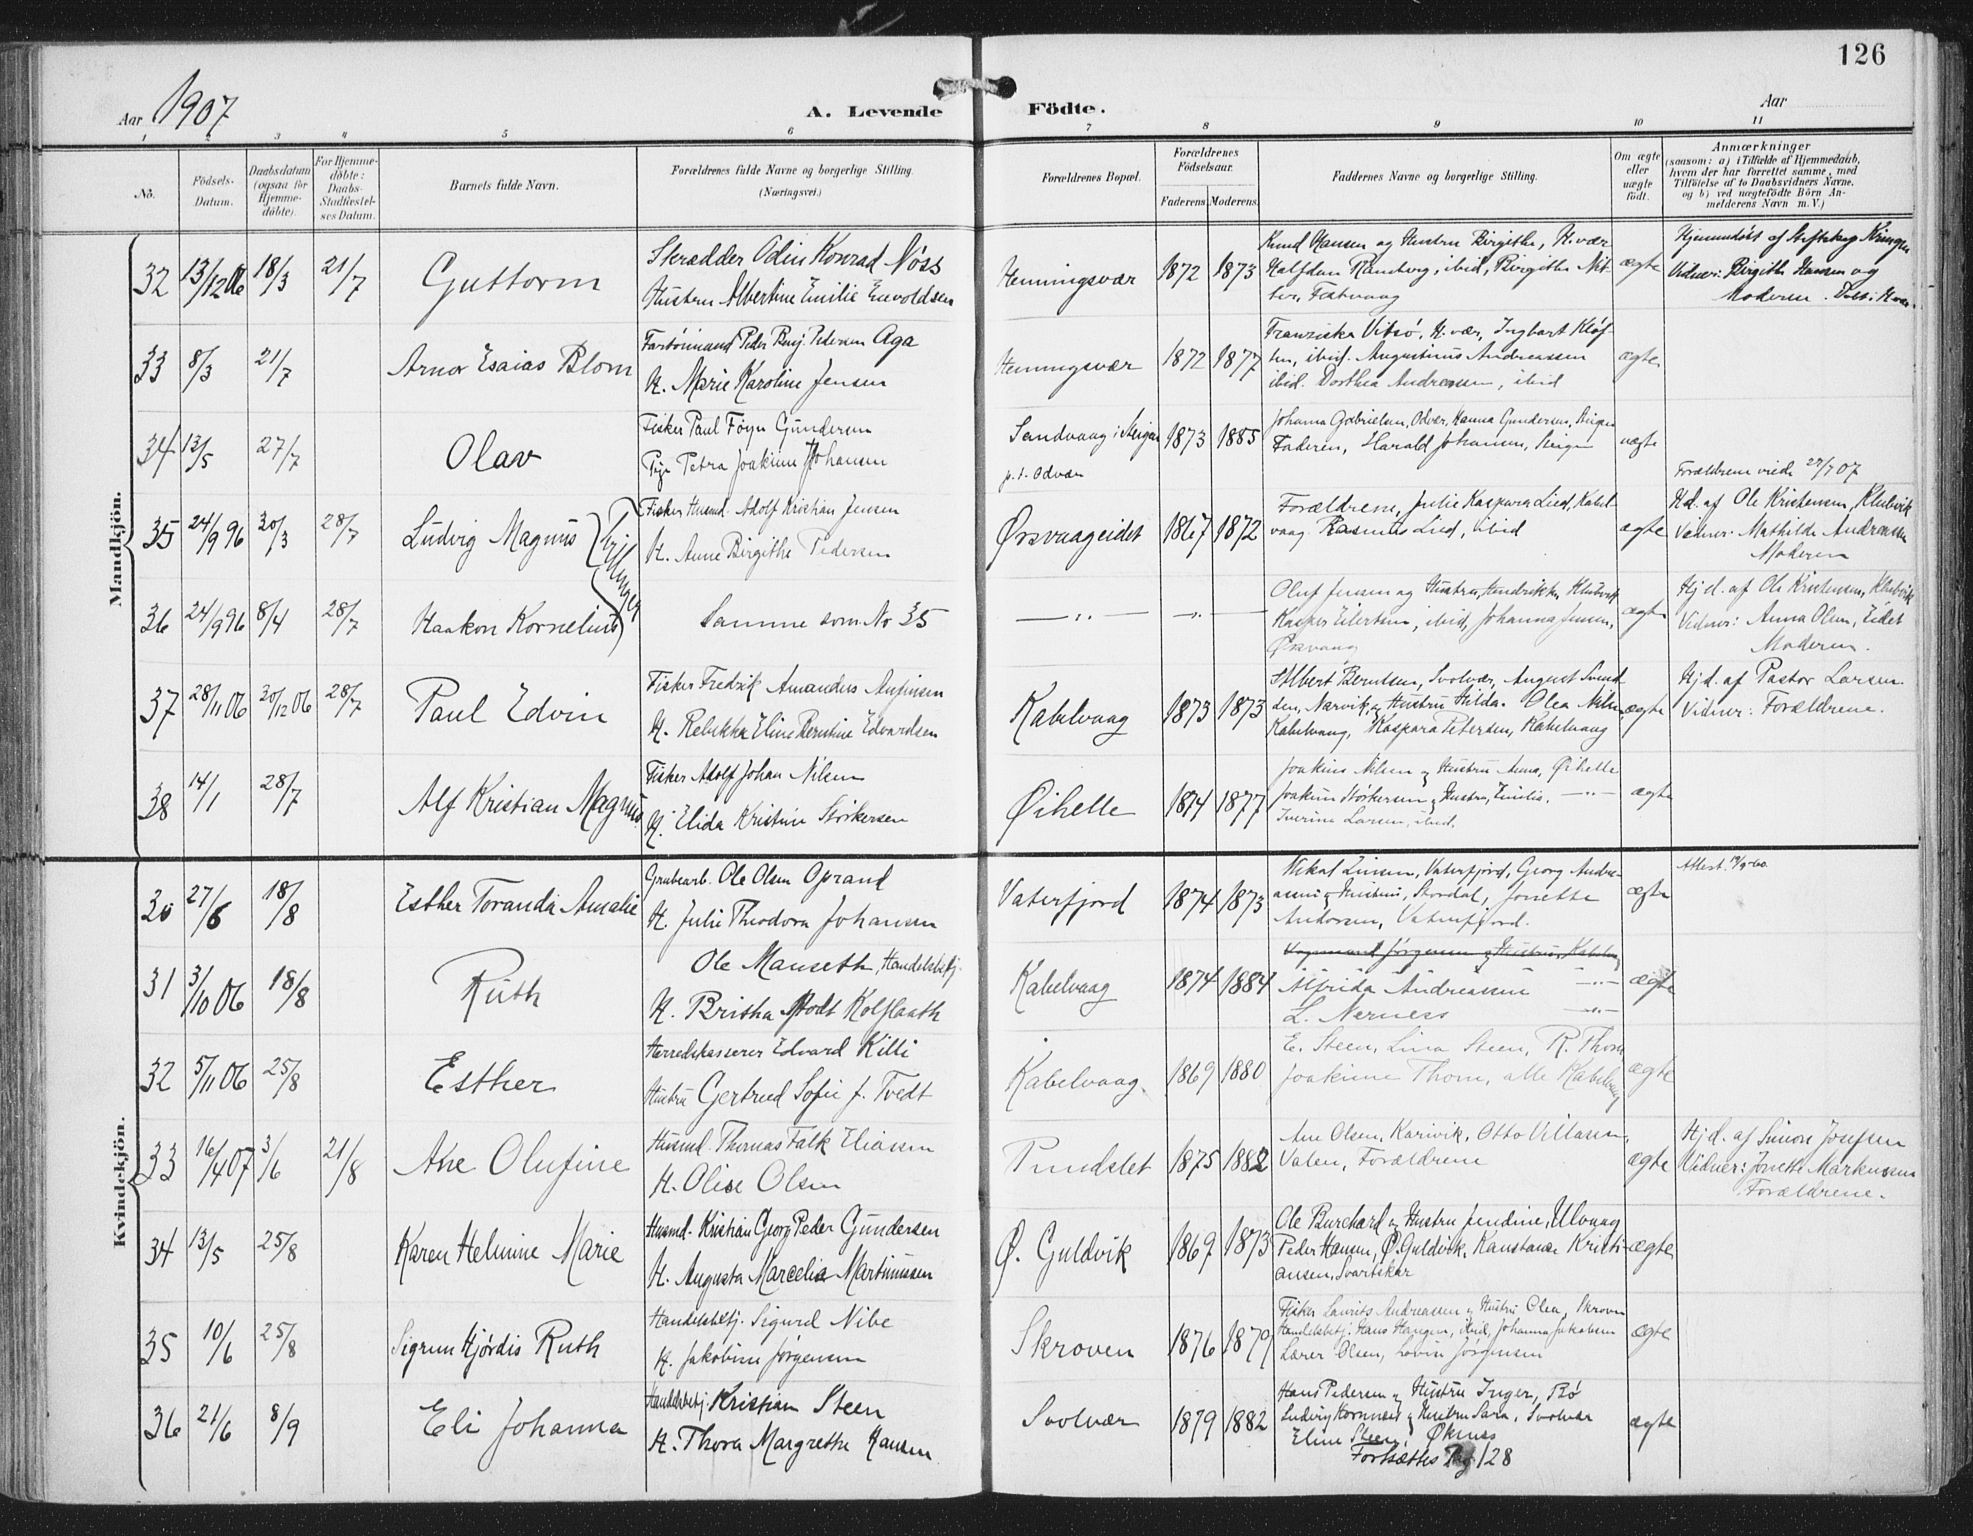 126
Aar 1907
A. Levende Födte.
Aar
1 2 3 4 5 6 7 8 9 10 11
No.
Födsels-Datum.
Daabsdatum (ogsaa for Hjemme-döbte).
For Hjemme-döbte: Daabs-Stadfæstel-ses Datum.
Barnets fulde Navn.
Forældrenes fulde Navne og borgerlige Stilling.
(Næringsvei.)
Forældrenes Bopæl.
Forældrenes Födselsaar.
Faderens. Moderens.
Faddernes Navne og borgerlige Stilling.
Om ægte eller uægte födt.
Anmærkninger
(saasom: a) i Tilfælde af Hjemmedaab,
hvem der har forrettet samme, med
Tilföielse af to Daabsvidners Navne,
og b) ved uægtefödte Börn An-
melderens Navn m. V.)
Mandkjön.
32 13/12 06 18/3 21/7 Guttorm
Skrædder Odin Konrad Nöss
Hustru Albertine Emilie Enevoldsen
Henningsvær 1872 1873
Knud Hansen og Hustru Birgithe, H.vær
Halfdan Ramberg, ibid, Birgithe
ægte
Hjemmedöbt af
Vidner: Birgithe Hansen og
Moderen.
33 8/3 21/7 Arnor Esaias Blom
Peder Benj. Petersen Aga
H. Marie Karoline Jensen
Henningsvær 1872 1877
ibid. Augustinus Andreassen
ibid. Dorthea Andreassen, ibid
ægte
34 13/5 27/7 Olav
Fisker Paul Föyn Gundersen
Pige Petra Joakime Johansen
Sandvaag i Steigen
p.t. Odvær
1873 1885
Johanna Gabrielsen, Odvær, Hanna Gundersen,
Faderen, Harald Johansen,
uægte
Forældrene viede 27/7 07
35 24/9 96 30/3 28/7 Ludvig Magnus
Tvillinger
Fisker Husmd. Adolf Kristian Jensen
H. Anne Birgithe Pedersen
Ørsvaageidet 1867 1872
Forældrene, Julie Kaspara Lied, Kabel-
vaag Rasmus Lied, ibid
ægte
Hd. af Ole Kristensen, Klubvik
Vidner: Mathilde Andreassen
Moderen
36 24/9 96 8/4 28/7 Haakon Kornelius
Samme som No 35
— „ — — „ —
Oluf Jensen og Hustru, Hendrikke, Klubvik
Kasper Eilertsen, ibid, Johanna Jensen,
Ørsvaag
ægte
Hjd. af Ole Kristensen, Klubvik
Vidner: Anna Olsen, Eidet
Moderen.
37 28/11 06 30/12 06 28/7 Paul Edvin
Fisker Fredrik Amandus Anfinsen
H. Rebekka Eline Berntine Edvardsen
Kabelvaag 1873 1873
Albert Berntsen, Svolvær, August Svend-
sen, Narvik, og Hustru Hilda. Olea Nilsen
Kabelvaag, Kaspara Petersen, Kabelvaag
ægte
Hjd. af Pastor Larsen.
Vidner: Forældrene.
38 14/1 28/7 Alf Kristian Magnus
Fisker Adolf Johan Nilsen
H. Elida Kristine Störkersen
Øihelle 1874 1877
Joakim Nilsen og Hustru Anna, Øihelle
Joakim Störkersen og Hustru, Emilie, — „ —
Iverine Larsen, ibid.
ægte
Kvindekjön.
30 27/6 18/8 Esther Toranda Amalie
Grubearb. Ole Olsen Oprand
H. Julie Theodora Johansen
Vaterfjord 1874 1873
Vaterfjord, Georg Andre-
assen og Hustru, Stordal, Jonette
Andersen, Vaterfjord.
ægte
Attest
31 3/10 06 18/8 Ruth
Ole Manseth, Handelsbetj.
H. Britha Hodt Kolflaath
Kabelvaag 1874 1884
Vognmand Jörgensen og Hustru, Kabelvaag
Alfrida Andreassen — „ —
L. Nerness — „ —
ægte
32 5/11 06 25/8 Esther
Herredskasserer Edvard Killi
Hustru Gertrud Sofie f. Tvedt
Kabelvaag. 1869 1880
E. Steen, Lina Steen, R. Thom
Joakime Thom, alle Kabelvaag
ægte
33 16/4 07 3/6 21/8 Ane Olufine
Husmd. Thomas Falk Eliassen
H. Olise Olsen
Pundslet 1875 1882
Ane Olsen, Karivik, Otto Villassen,
Valen, Forældrene
ægte
Hjd. af Simon Josefsen
Vidner: Jonette Markussen
Forældrene.
34 13/5 25/8 Karen Helmine Marie
Husmd. Kristian Georg Peder Gundersen
H. Augusta Marcelia Martinussen
Ø. Guldvik 1869 1873
Ole Burchard og Hustru Jendine, Ulvaag
Peder Hansen, Ø. Guldvik, Konstanse Kristi-
ansen, Svartskar
ægte
35 10/6 25/8 Sigrun Hjördis Ruth
Handelsbetj. Sigurd Nibe
H. Jakobine Jörgensen
Skroven 1876 1879
Fisker Laurits Andreassen og Hustru Olea, Skroven
Handelsbetj. Hans Haugen, ibid, Johanna Jakobsen
Lærer Olsen, Lovise Jörgensen
ægte
36 21/6 8/9 Eli Johanna
Handelsbetj. Kristian Steen
H. Thora Margrethe Hansen
Svolvær 1879 1882
Hans Pedersen og Hustru Inger, Bö
Ludvig Kornnæs og Hustru Sara, Svolvær
Eline Steen,
ægte
Fortsættes Pag. 128